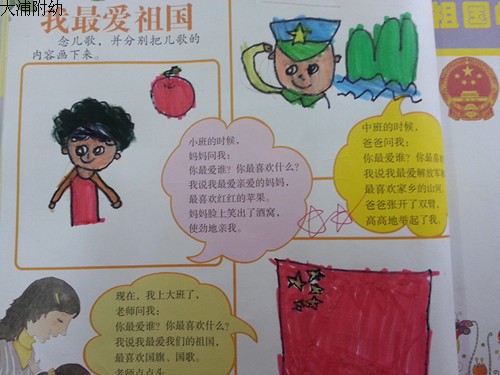 大浦附幼
我最爱祖国
念儿歌，并分别把儿歌的
内容画下来。
祖国
小班的时候，
妈妈问我：
你最爱谁？你最喜欢什么？
我说我最爱亲爱的妈妈，
最喜欢红红的苹果。
妈妈脸上笑出了酒窝，
使劲地亲我。
中班的时候，
爸爸问我：
你最爱谁？你最喜欢
我说我最爱解放军
最喜欢家乡的山河。
爸爸张开了双臂，
高高地举起了我。
现在，我上大班了，
老师问我：
你最爱谁？你最喜欢什么？
我说我最爱我们的祖国，
最喜欢国旗、国歌。
老师点点头，